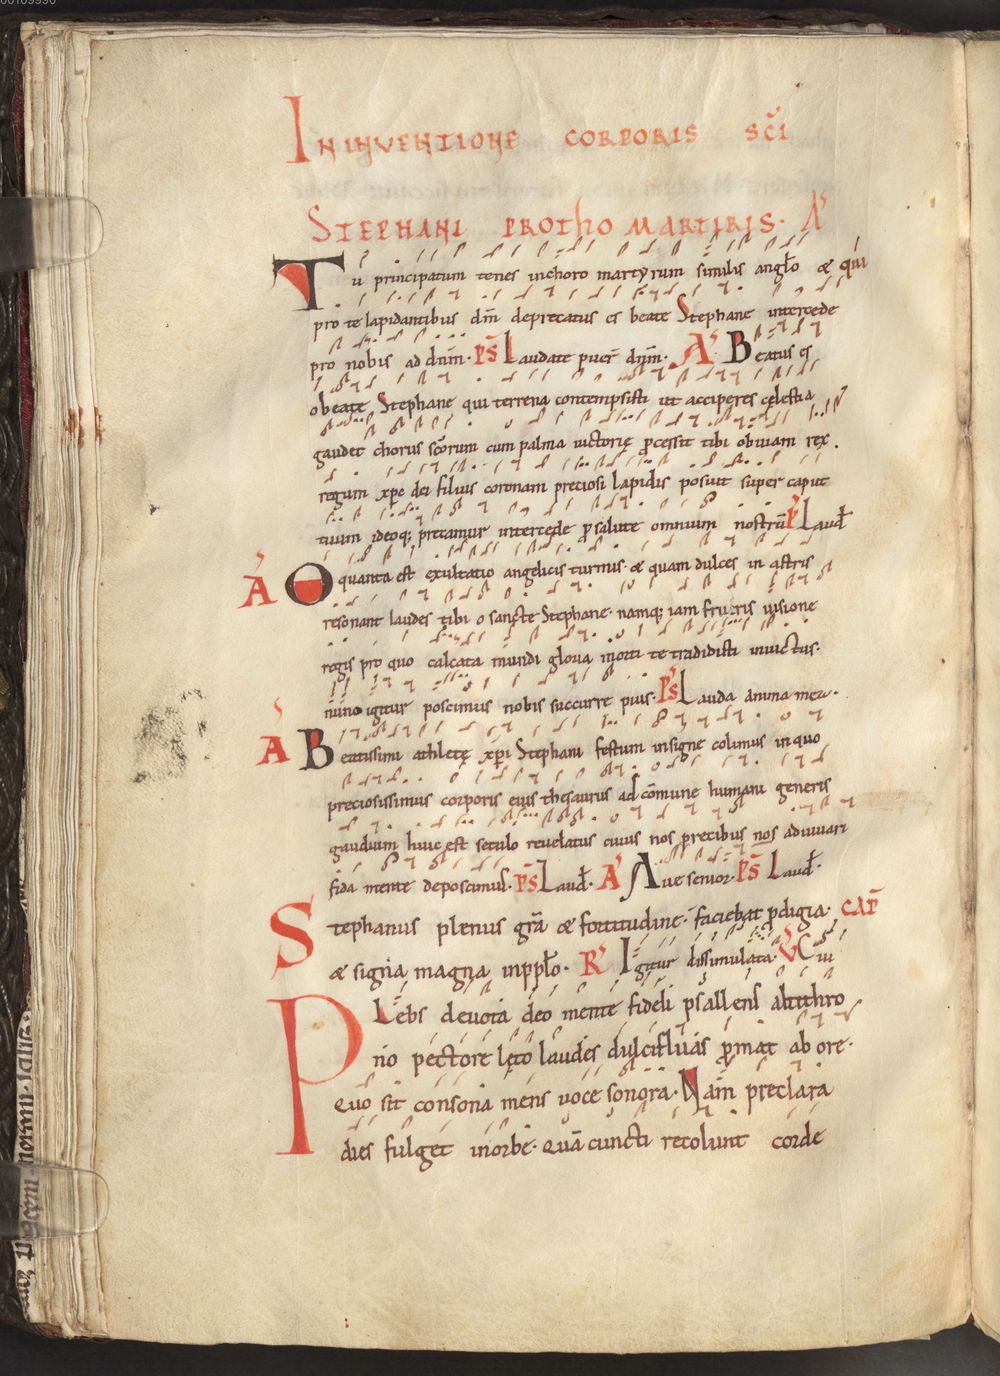 00109990
IN INVENTIONE CORPORIS SC̄I
STEPHANI PROTHO MARTIRIS. A᷎
Tu principatum tenes inchoro martyrum similis angl̄o & qui
pro te lapidantibus dnm̄ deprecatus es beate Stephane intercede
pro nobis ad dnm̄. Ps̄ Laudate puer̄ dnm̄. A᷎ Beatus es
o beate Stephane qui terrena contempsisti ut acciperes cęlestia
gaudet chorus sc̄orum cum palma uictorię ꝓcessit tibi obuiam rex.
regum xp̄c dei filius coronam preciosi lapidis posuit super caput
tuum ideoq; precamur intercede ꝓ salute omnium nostrū Ps̄ Laud̄
A᷎ O quanta est exultatio angelicis turmis. & quam dulces in astris
resonant laudes tibi o sancte Stephane. namq; iam frueris uisione
regis pro quo calcata mundi gloria morti te tradidisti inuictus.
nunc igitur poscimus nobis succurre pius. Ps̄ Lauda anima mea.
A᷎ Beatissimi athletę xp̄i Stephani festum insigne colimus in quo
preciosissimus corporis eius thesaurus ad cōmune humani generis
gaudium huic est seculo reuelatus cuius nos precibus nos adiuuari
fida mente deposcimus. Ps̄ Laud̄. A᷎ Aue senior. Ps̄ Laud̄.
Stephanus plenus grā & fortitudine. faciebat ꝓdigia. CAP̄
& signa magna inppl̄o. R᷎ Igitur dissimulata. V Cui
PLebs deuota deo mente fideli psallens altithro
no pectore lęto laudes dulcifluas ꝓmat ab ore.
Quo sit consona mens uoce sonora. Nam preclara
dies fulget in orbe. quā cuncti recolunt corde